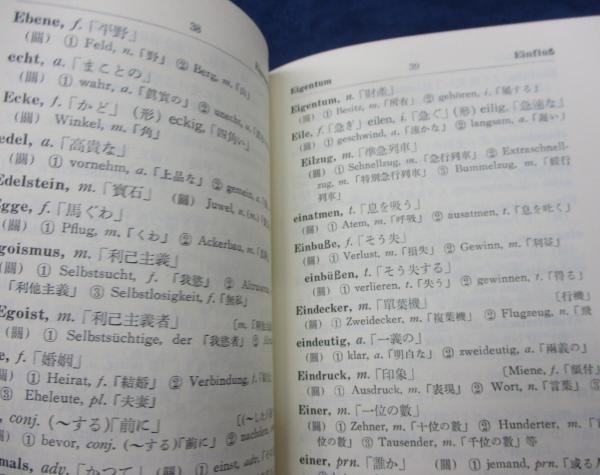 38
Ebene, f.「平野」
(關) ① Feld, n.「野」 ② Berg, m.「山」
echt, a.「まことの」
(關) ① wahr, a.「眞實の」 ② unecht, a.
Ecke, f.「かど」 (形) eckig,「四角い」
(關) Winkel, m.「角」
edel, a.「高貴な」
(關) ① vornehm, a.「上品な」 ② gemein, a.
Edelstein, m.「寶石」 (關) Juwel, n.(m.)
Egge, f.「馬ぐわ」
(關) ① Pflug, m.「くわ」 ② Ackerbau, m.
goismus, m.「利己主義」
(關) ① Selbstsucht, f.「我慾」 ②
「利他主義」 ③ Selbstlosigkeit, f.「無私」
Egoist, m.「利己主義者」
(關) ① Selbstsüchtige, der「我慾者」 ②
e, f.「婚姻」
(關) ① Heirat, f.「結婚」 ② Verbindung, f.
③ Eheleute, pl.「夫妻」
conj. (〜する)「前に」
(關) ① bevor, conj.「(〜する)前に」 ② nachdem,
mals, adv.「かつて」 ① einst, adv.
39
Eigentum
Einfluß
Eigentum, n.「財産」
(關) ① Besitz, m.「所有」 ② gehören, i.「屬する」
Eile, f.「急ぎ」 eilen, i.「急ぐ」 (形) eilig,「急速な」
(關) ① geschwind, a.「速かな」 ② langsam, a.「遲い」
Eilzug, m.「準急列車」
(關) ① Schnellzug, m.「急行列車」 ② Extraschnell-
zug, m.「特別急行列車」 ③ Bummelzug, m.「緩行
列車」
einatmen, t.「息を吸う」
(關) ① Atem, m.「呼吸」 ② ausatmen, t.「息を吐く」
Einbuße, f.「そう失」
(關) ① Verlust, m.「損失」 ② Gewinn, m.「利益」
einbüßen, t.「そう失する」
(關) ① verlieren, t.「失う」 ② gewinnen, t.「得る」
Eindecker, m.「單葉機」 [行機」
(關) ① Zweidecker, m.「複葉機」 ② Flugzeug, n.「飛
eindeutig, a.「一義の」
(關) ① klar, a.「明白な」 ② zweideutig, a.「兩義の」
Eindruck, m.「印象」 [Miene, f.「顏付」
(關) ① Ausdruck, m.「表現」 ② Wort, n.「言葉」 ③
Einer, m.「一位の數」
(關) ① Zehner, m.「十位の數」 ② Hunderter, m.
「百位の數」 ③ Tausender, m.「千位の數」等
einer, prn.「誰か」
(關) ① jemand, prn.「或る人